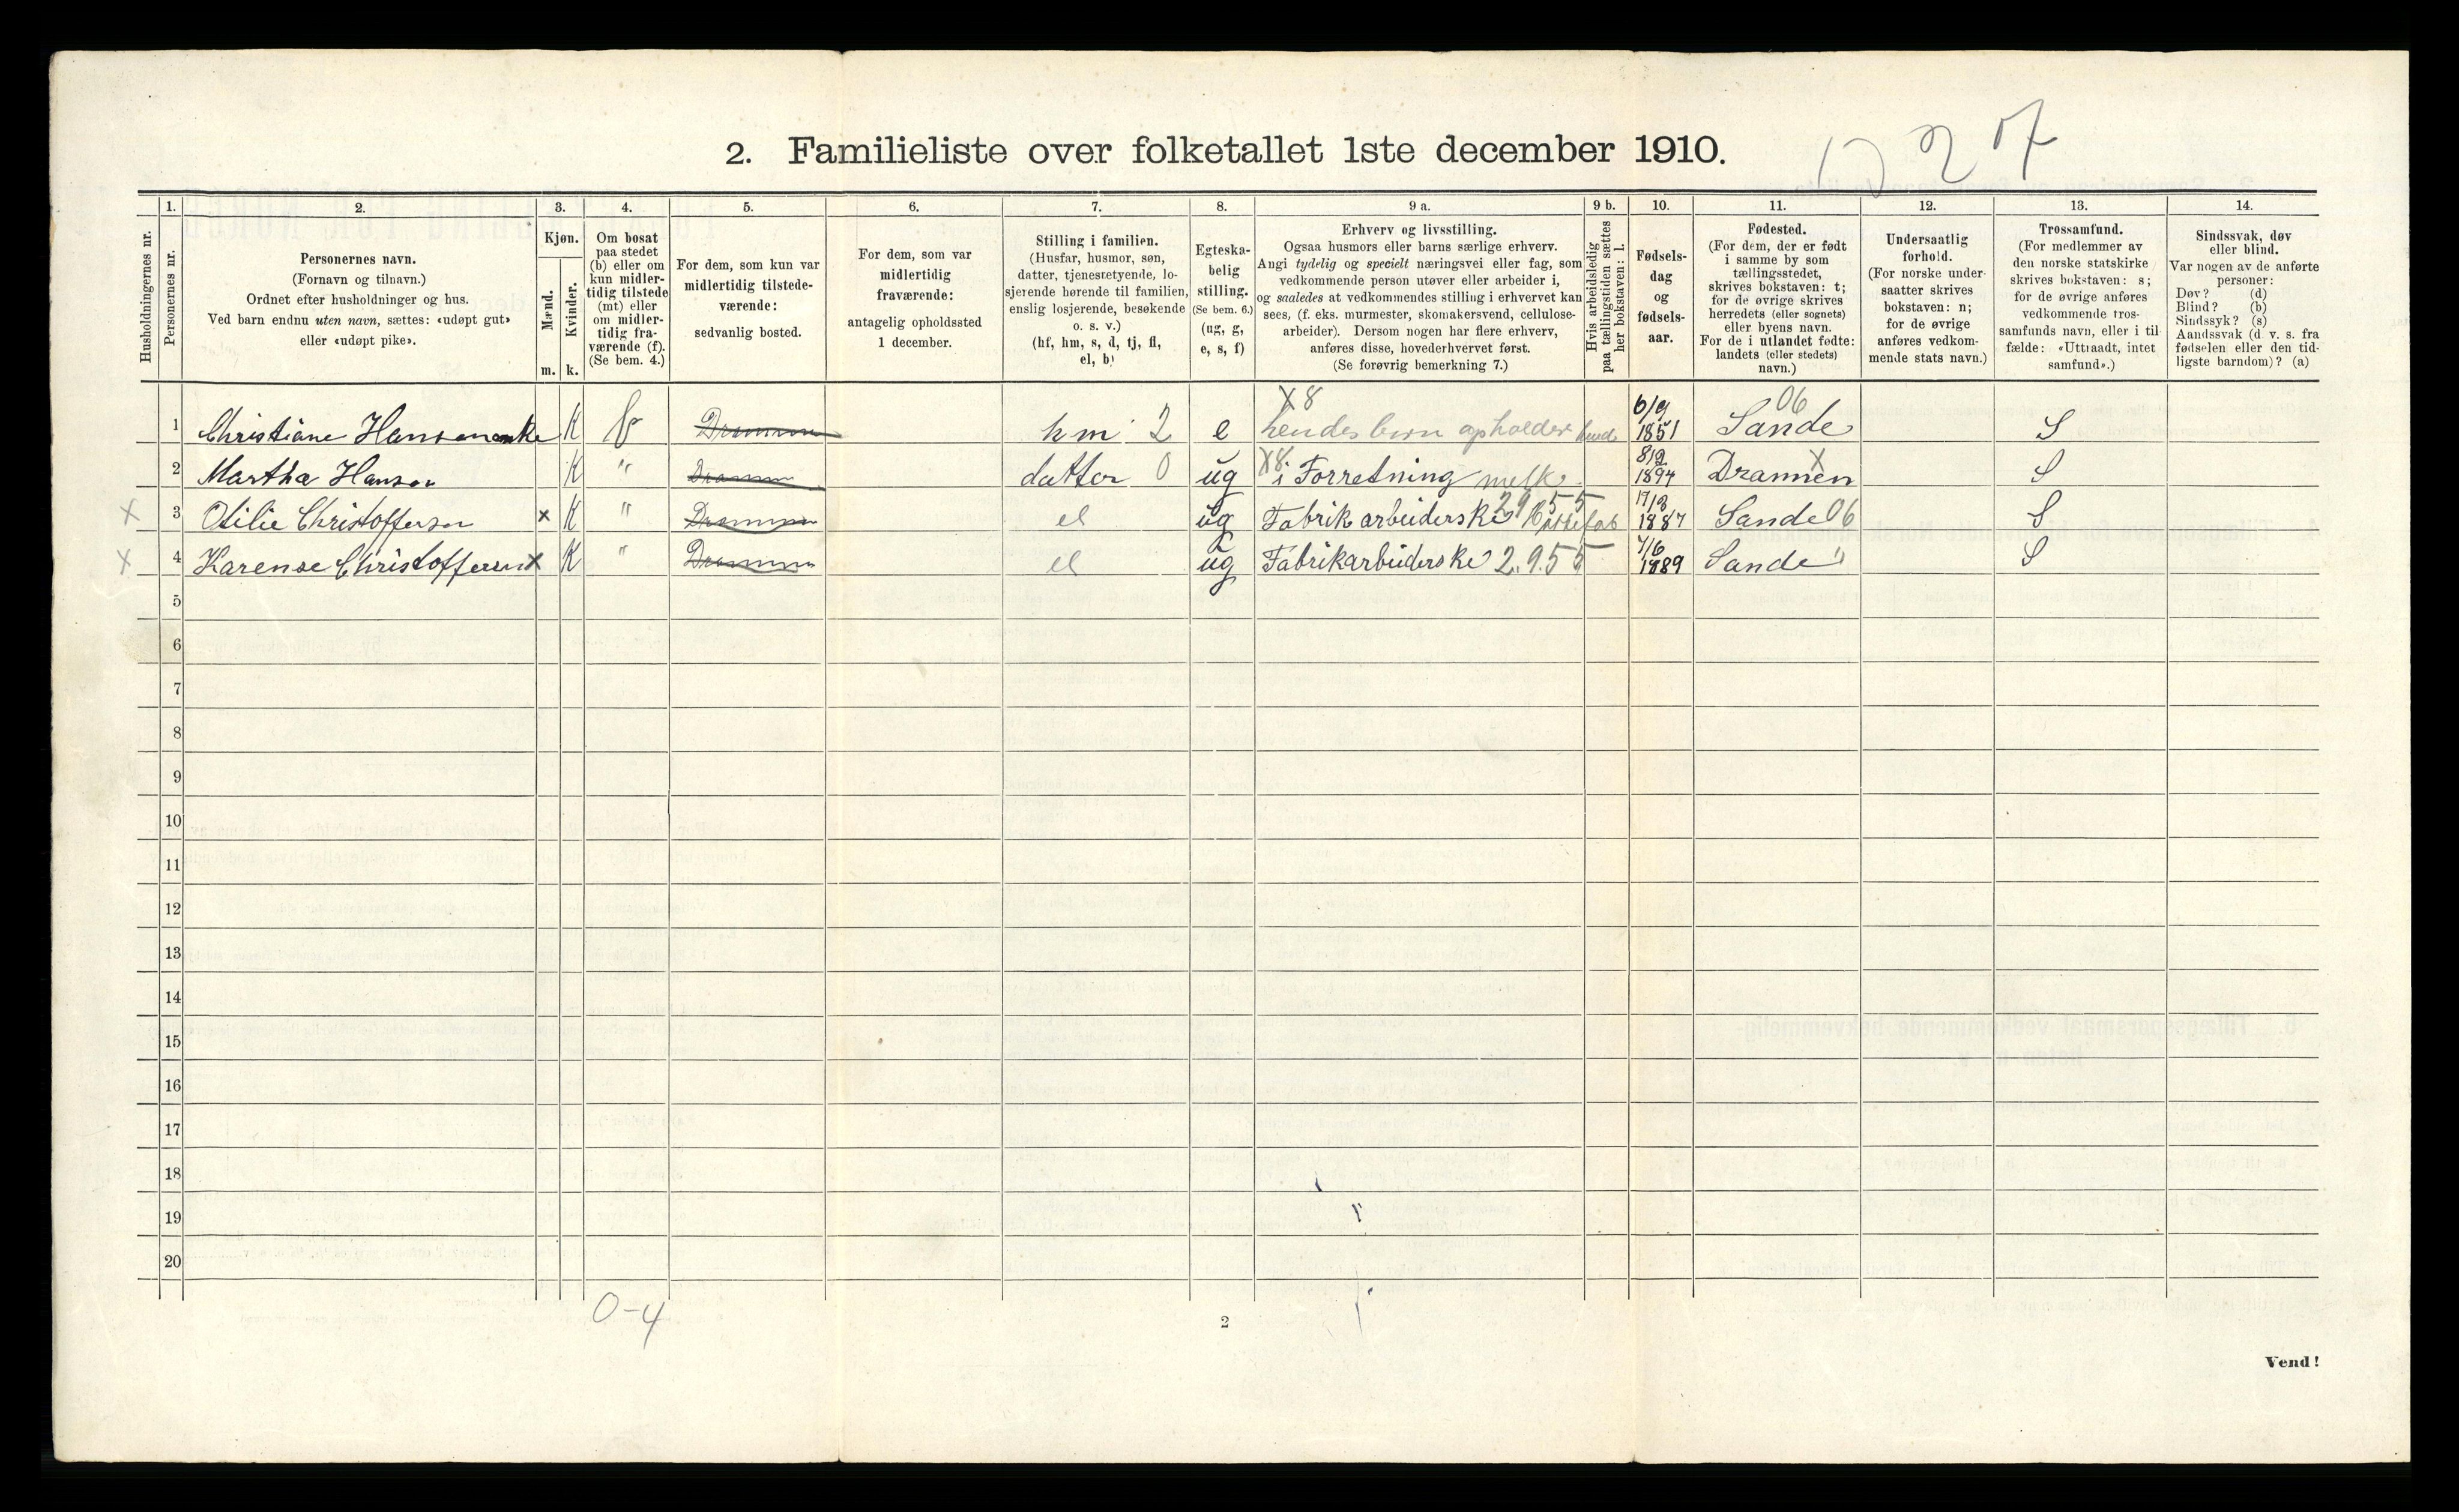 2. Familieliste over folketallet 1ste december 1910.
Husholdningernes nr.
1.
Personernes nr.
2.
Personernes navn.
(Fornavn og tilnavn.)
Ordnet efter husholdninger og hus.
Ved barn endnu uten navn, sættes: «udøpt gut»
eller «udøpt pike».
3.
Kjøn.
Mænd.
Kvinder.
m. k.
4.
Om bosat
paa stedet
(b) eller om
kun midler-
tidig tilstede
(mt) eller
om midler-
tidig fra-
værende (f).
(Se bem. 4.)
5.
For dem, som kun var
midlertidig tilstede-
værende:
sedvanlig bosted.
6.
For dem, som var
midlertidig
fraværende:
antagelig opholdssted
1 december.
7.
Stilling i familien.
(Husfar, husmor, søn,
datter, tjenestetyende, lo-
sjerende hørende til familien,
enslig losjerende, besøkende
o. s. v.)
(hf, hm, s, d, tj, fl,
el, b)
8.
Egteska-
belig
stilling.
(Se bem. 6.)
(ug, g,
e, s, f)
9 a.
Erhverv og livsstilling.
Ogsaa husmors eller barns særlige erhverv.
Angi tydelig og specielt næringsvei eller fag, som
vedkommende person utøver eller arbeider i,
og saaledes at vedkommendes stilling i erhvervet kan
sees, (f. eks. murmester, skomakersvend, cellulose-
arbeider). Dersom nogen har flere erhverv,
anføres disse, hovederhvervet først.
(Se forøvrig bemerkning 7.)
9 b.
Hvis arbeidsledig
paa tællingstiden sættes
her bokstaven: l.
10.
Fødsels-
dag
og
fødsels-
aar.
11.
Fødested.
(For dem, der er født
i samme by som
tællingsstedet,
skrives bokstaven: t;
for de øvrige skrives
herredets (eller sognets)
eller byens navn.
For de i utlandet fødte:
landets (eller stedets)
navn.)
12.
Undersaatlig
forhold.
(For norske under-
saatter skrives
bokstaven: n;
for de øvrige
anføres vedkom-
mende stats navn.)
13.
Trossamfund.
(For medlemmer av
den norske statskirke
skrives bokstaven: s;
for de øvrige anføres
vedkommende tros-
samfunds navn, eller i til-
fælde: «Uttraadt, intet
samfund».)
14.
Sindssvak, døv
eller blind.
Var nogen av de anførte
personer:
Døv? (d)
Blind? (b)
Sindssyk? (s)
Aandssvak (d. v. s. fra
fødselen eller den tid-
ligste barndom)? (a)
1 Christiane Hansen enke K b Drammen hm 2 e X8 hendes børn opholder hend 6/9 1851 Sande 06 S
2 Martha Hansen K " Drammen datter 0 ug X8 i Forretning melk 8/2 1894 Drammen X S
X 3 Otilie Christoffersen x K " Drammen el ug Fabrikarbeiderske 2955 1887 Sande 06 S
X 4 Karense Christoffersen x K " Drammen el ug Fabrikarbeiderske 2.9.55 1/6 1889 Sande " S
5
6
7
8
9
10
11
12
13
14
15
16
17
18
19
20
0-4
2
Vend!